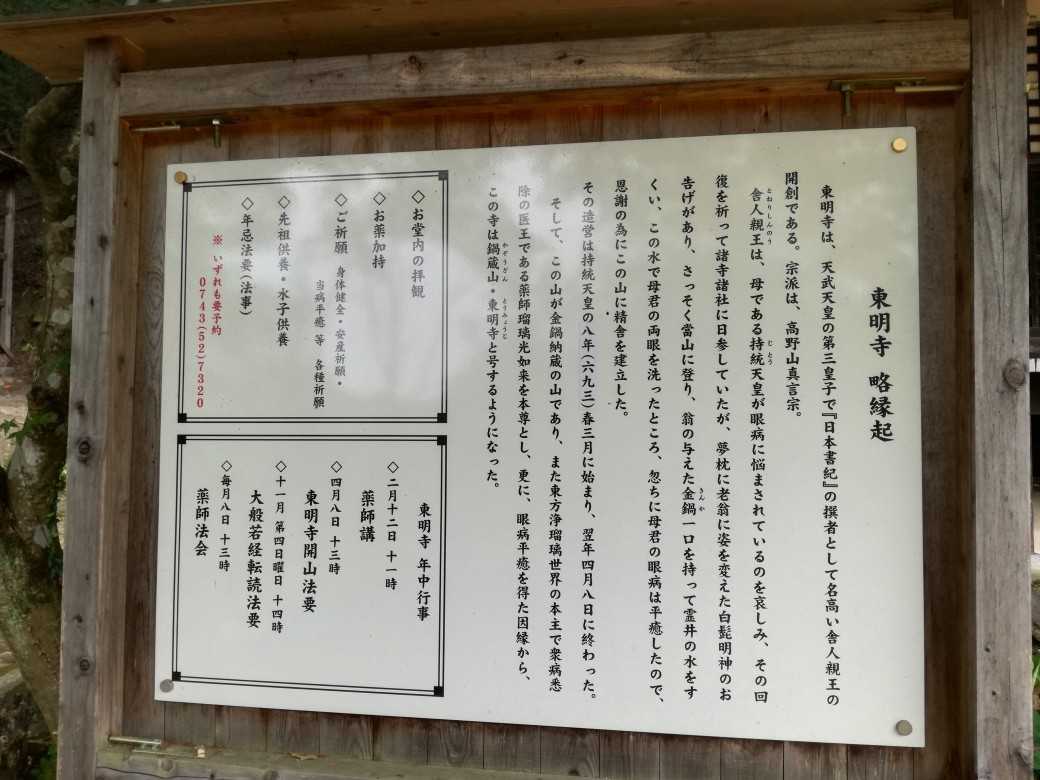 東明寺 略縁起
東明寺は、天武天皇の第三皇子で『日本書紀』の撰者として名高い舎人親王の
開創である。宗派は、高野山真言宗。
舎人親王は、母である持統天皇が眼病に悩まされているのを哀しみ、その回
とねりしんのう
じとう
復を祈って諸寺諸社に日参していたが、夢枕に老翁に姿を変えた白髭明神のお
告げがあり、さっそく當山に登り、翁の与えた金鍋一口を持って霊井の水をす
きんか
くい、この水で母君の両眼を洗ったところ、忽ちに母君の眼病は平癒したので、
恩謝の為にこの山に精舎を建立した。
その造営は持統天皇の八年(六九三)春三月に始まり、翌年四月八日に終わった。
そして、この山が金鍋納蔵の山であり、また東方浄瑠璃世界の本主で衆病悉
除の医王である薬師瑠璃光如来を本尊とし、更に、眼病平癒を得た因縁から、
この寺は鍋蔵山・東明寺と号するようになった。
かぞうざん
とうみょうじ
◇お堂内の拝観
◇お薬加持
◇ご祈願 身体健全・安産祈願・
当病平癒 等 各種祈願
◇先祖供養・水子供養
◇年忌法要(法事)
※ いずれも要予約
0743(52)7320
東明寺 年中行事
◇二月十二日 十一時
薬師講
◇四月八日 十三時
東明寺開山法要
◇十一月 第四日曜日 十四時
大般若経転読法要
◇毎月八日 十三時
薬師法会